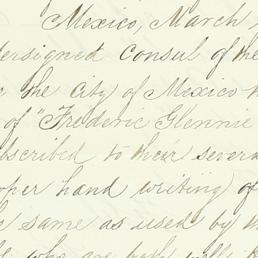 Mexico, March
dersigned Consul of the
the City of Mexico
of "Frederic Glennie
bscribed to their severa
oper hand writing) of
same as used by
who are both well